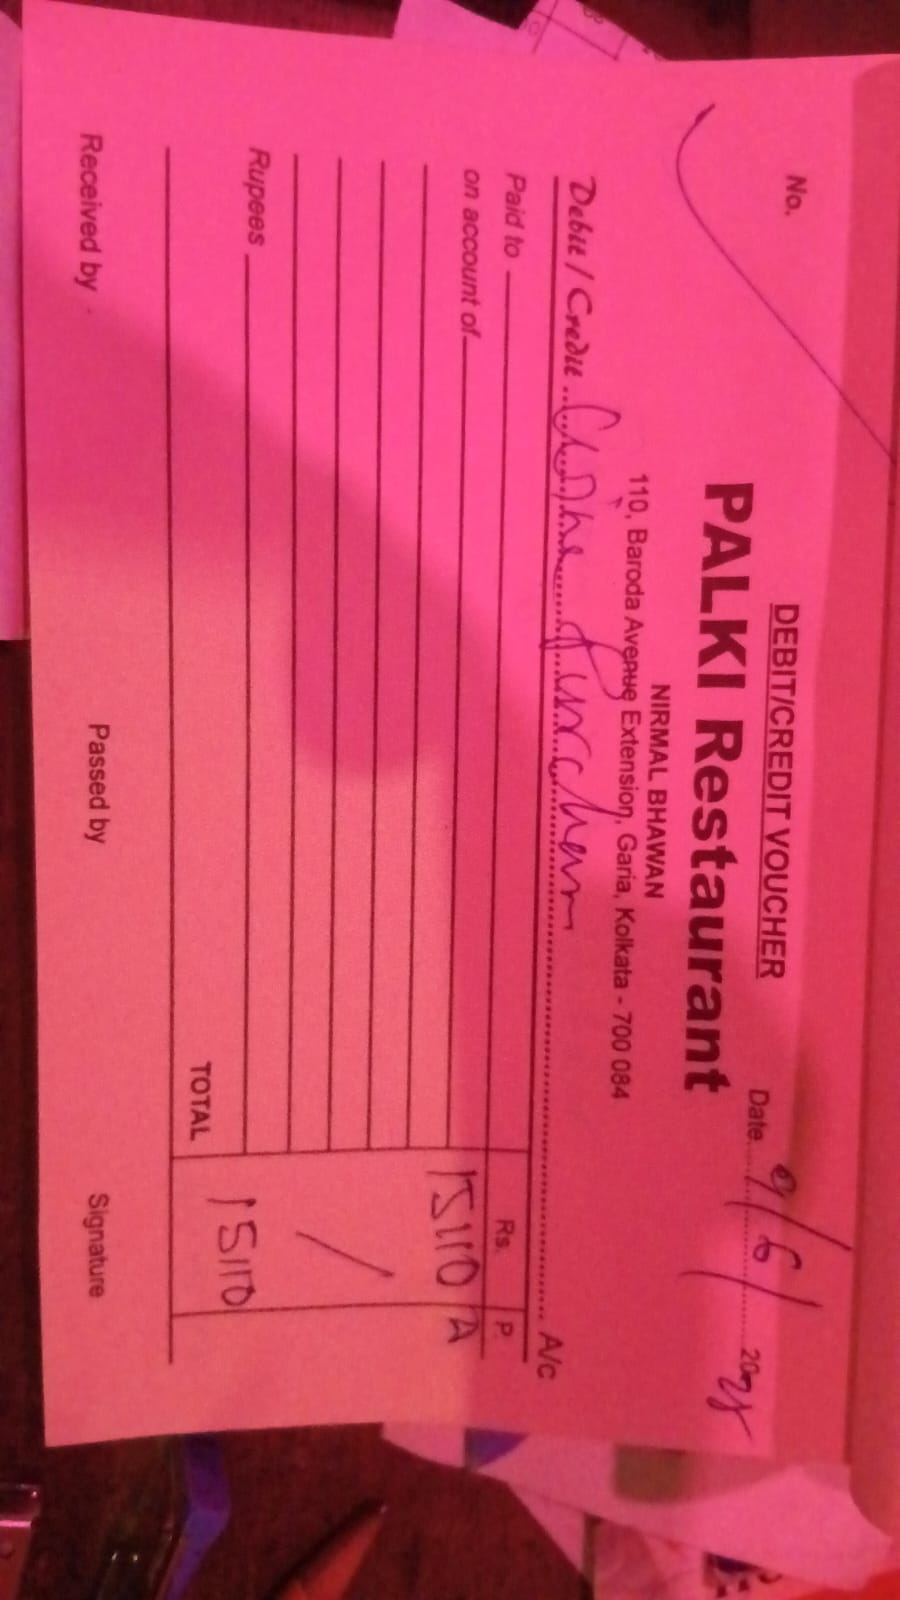 DEBIT/CREDIT VOUCHER
No.
Date 9/6/ 20
PALKI Restaurant
NIRMAL BHAWAN
110, Baroda Avenue Extension, Garia, Kolkata - 700 084
Debit / Credit A/c
Paid to Rs. P.
on account of 15110
Rupees
TOTAL 15110
Received by Passed by Signature